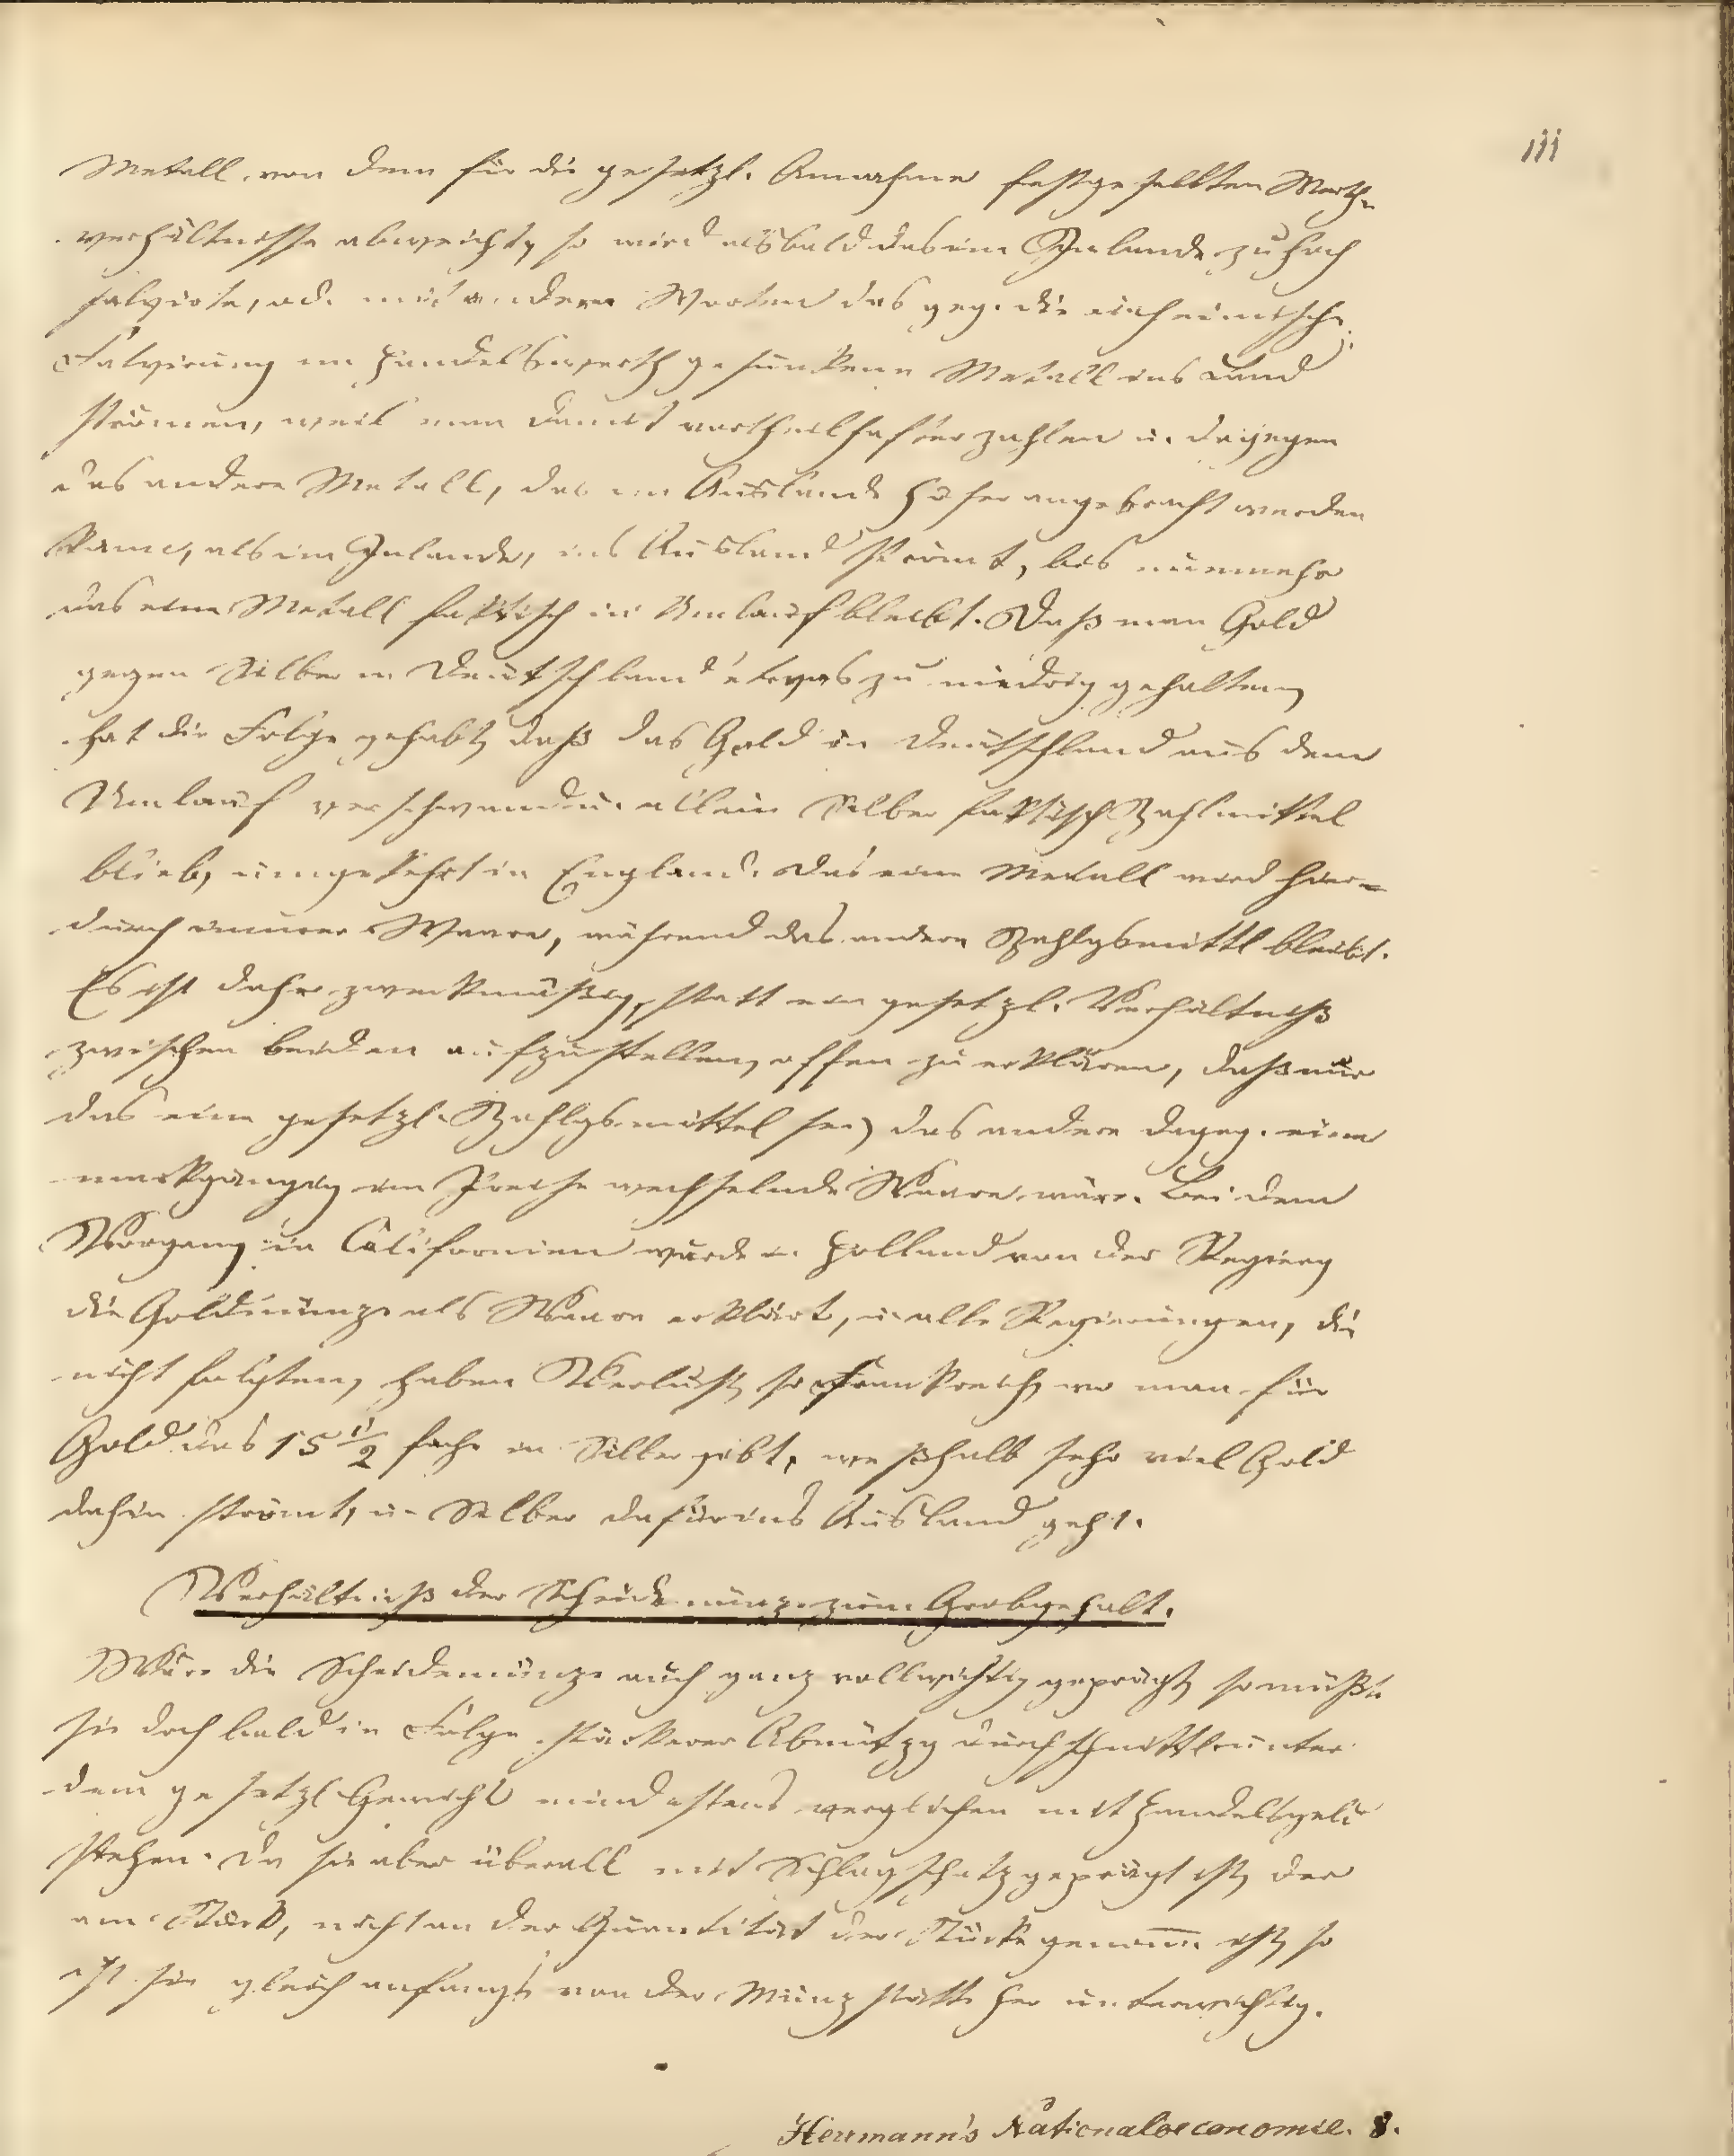 111
Metall von dem für die gesetzl. Annahme festgestellten Werth-
verhältnisse abweicht, so wird alsbald das im Inlande zu hoch
salvirte, od. mit andern Worten das geg. die einheimische
Salvirung im Handelswerth gesunkene Metall ins Land
strömen, weil man damit vortheilhafter zahlen u. dagegen
das andere Metall, das im Auslande höher angebracht werden
kann, als im Inlande, ins Ausland strömt, bis nunmehr
das eine Metall faktisch in Umlauf bleibt. Daß man Gold
gegen Silber in Deutschland etwas zu niedrig gehalten,
hat die Folge gehabt, daß das Gold in Deutschland aus dem
Umlauf verschwand u. allein Silber faktisch Zahlmittel
blieb, umgekehrt in England. Das eine Metall wird hier-
durch immer Waare, während das andere Zahlgsmittl bleibt.
Es ist daher zweckmäßig, statt ein gesetzl. Verhältniß
zwischen beiden aufzustellen, offen zu erklären, daß nur
das eine gesetzl. Zahlgsmittel sei, das andere dageg. eine
marktgängig im Preise wechselnde Waare wäre. Bei dem
Vorgang in Californien wurde in Holland von der Regierg
die Goldmünze als Waare erklärt, u. alle Regierungen, die
nicht folgten, haben Verlust, so Frankreich, wo man für
Gold das 15 1/2 fache in Silber gibt, weßhalb sehr viel Gold
dahin strömt, u. Silber dafür ins Ausland geht.
Verhältniß der Scheidemünze zum Grobgehalt.
Wäre die Scheidemünze auch ganz vollwichtig geprägt, so müßte
sie doch bald in Folge stärkerer Abnützg durchschnittl. unter
dem gesetzl. Gewicht mindestens verglichen mit Handelsgeld
stehen. Da sie aber überall mit Schlagschatz geprägt ist, der
am Stück, nicht an der Quantität der Stücke genom̅en ist, so
ist sie gleich anfangs von der Münzstätte her unterwichtig.
Hermann's Nationaloeconomie. 8.